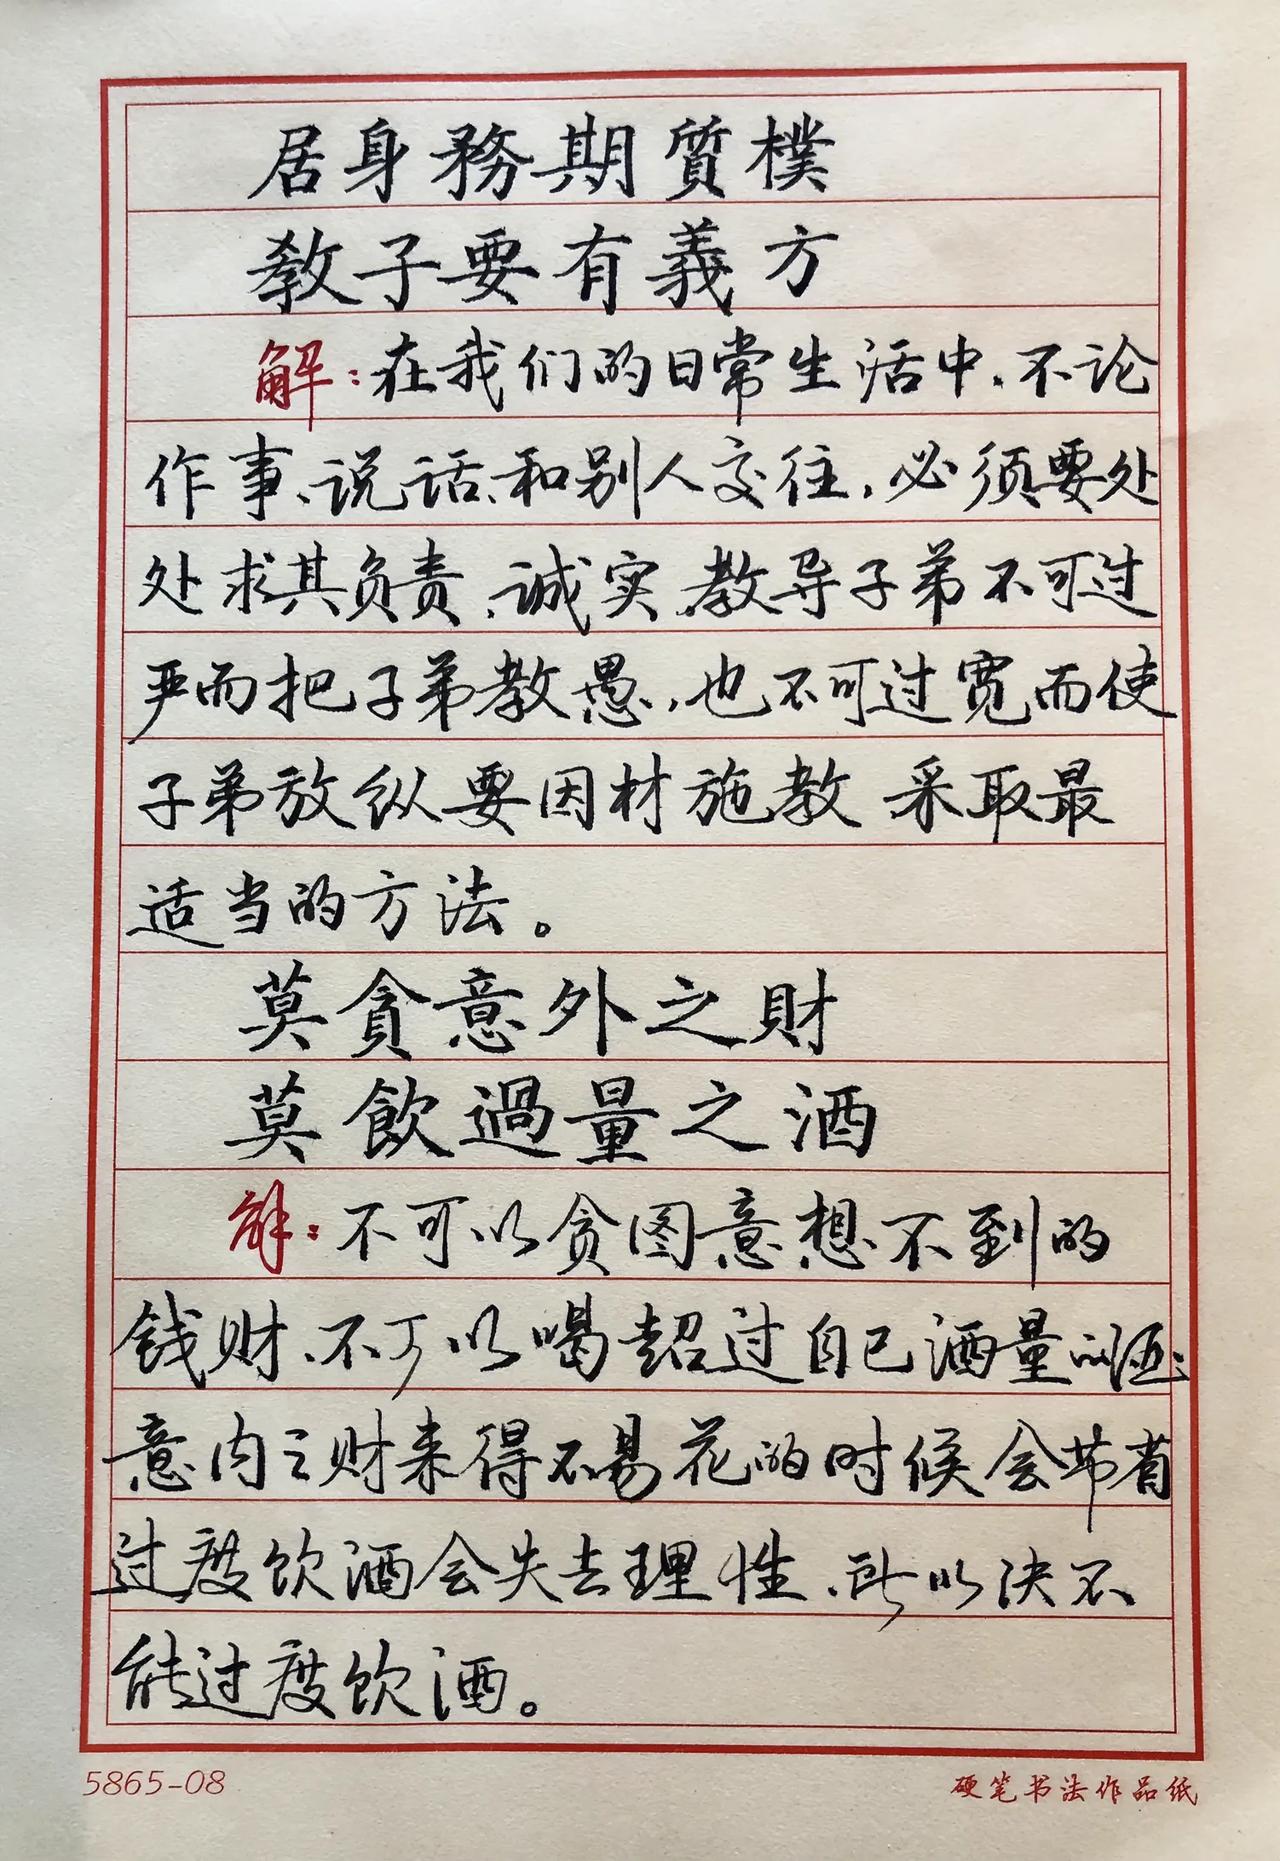 居身務期質樸
教子要有義方
解：在我们的日常生活中、不论
作事、说话、和别人交往，必须要处
处求其负责、诚实、教导子弟不可过
严而把子弟教愚，也不可过宽而使
子弟放纵要因材施教 采取最
适当的方法。
莫貪意外之財
莫飲過量之酒
解：不可以贪图意想不到的
钱财、不可以喝超过自己酒量的酒；
意内之财来得不易花的时候会节省
过度饮酒会失去理性、所以决不
能过度饮酒。
5865-08
硬笔书法作品纸